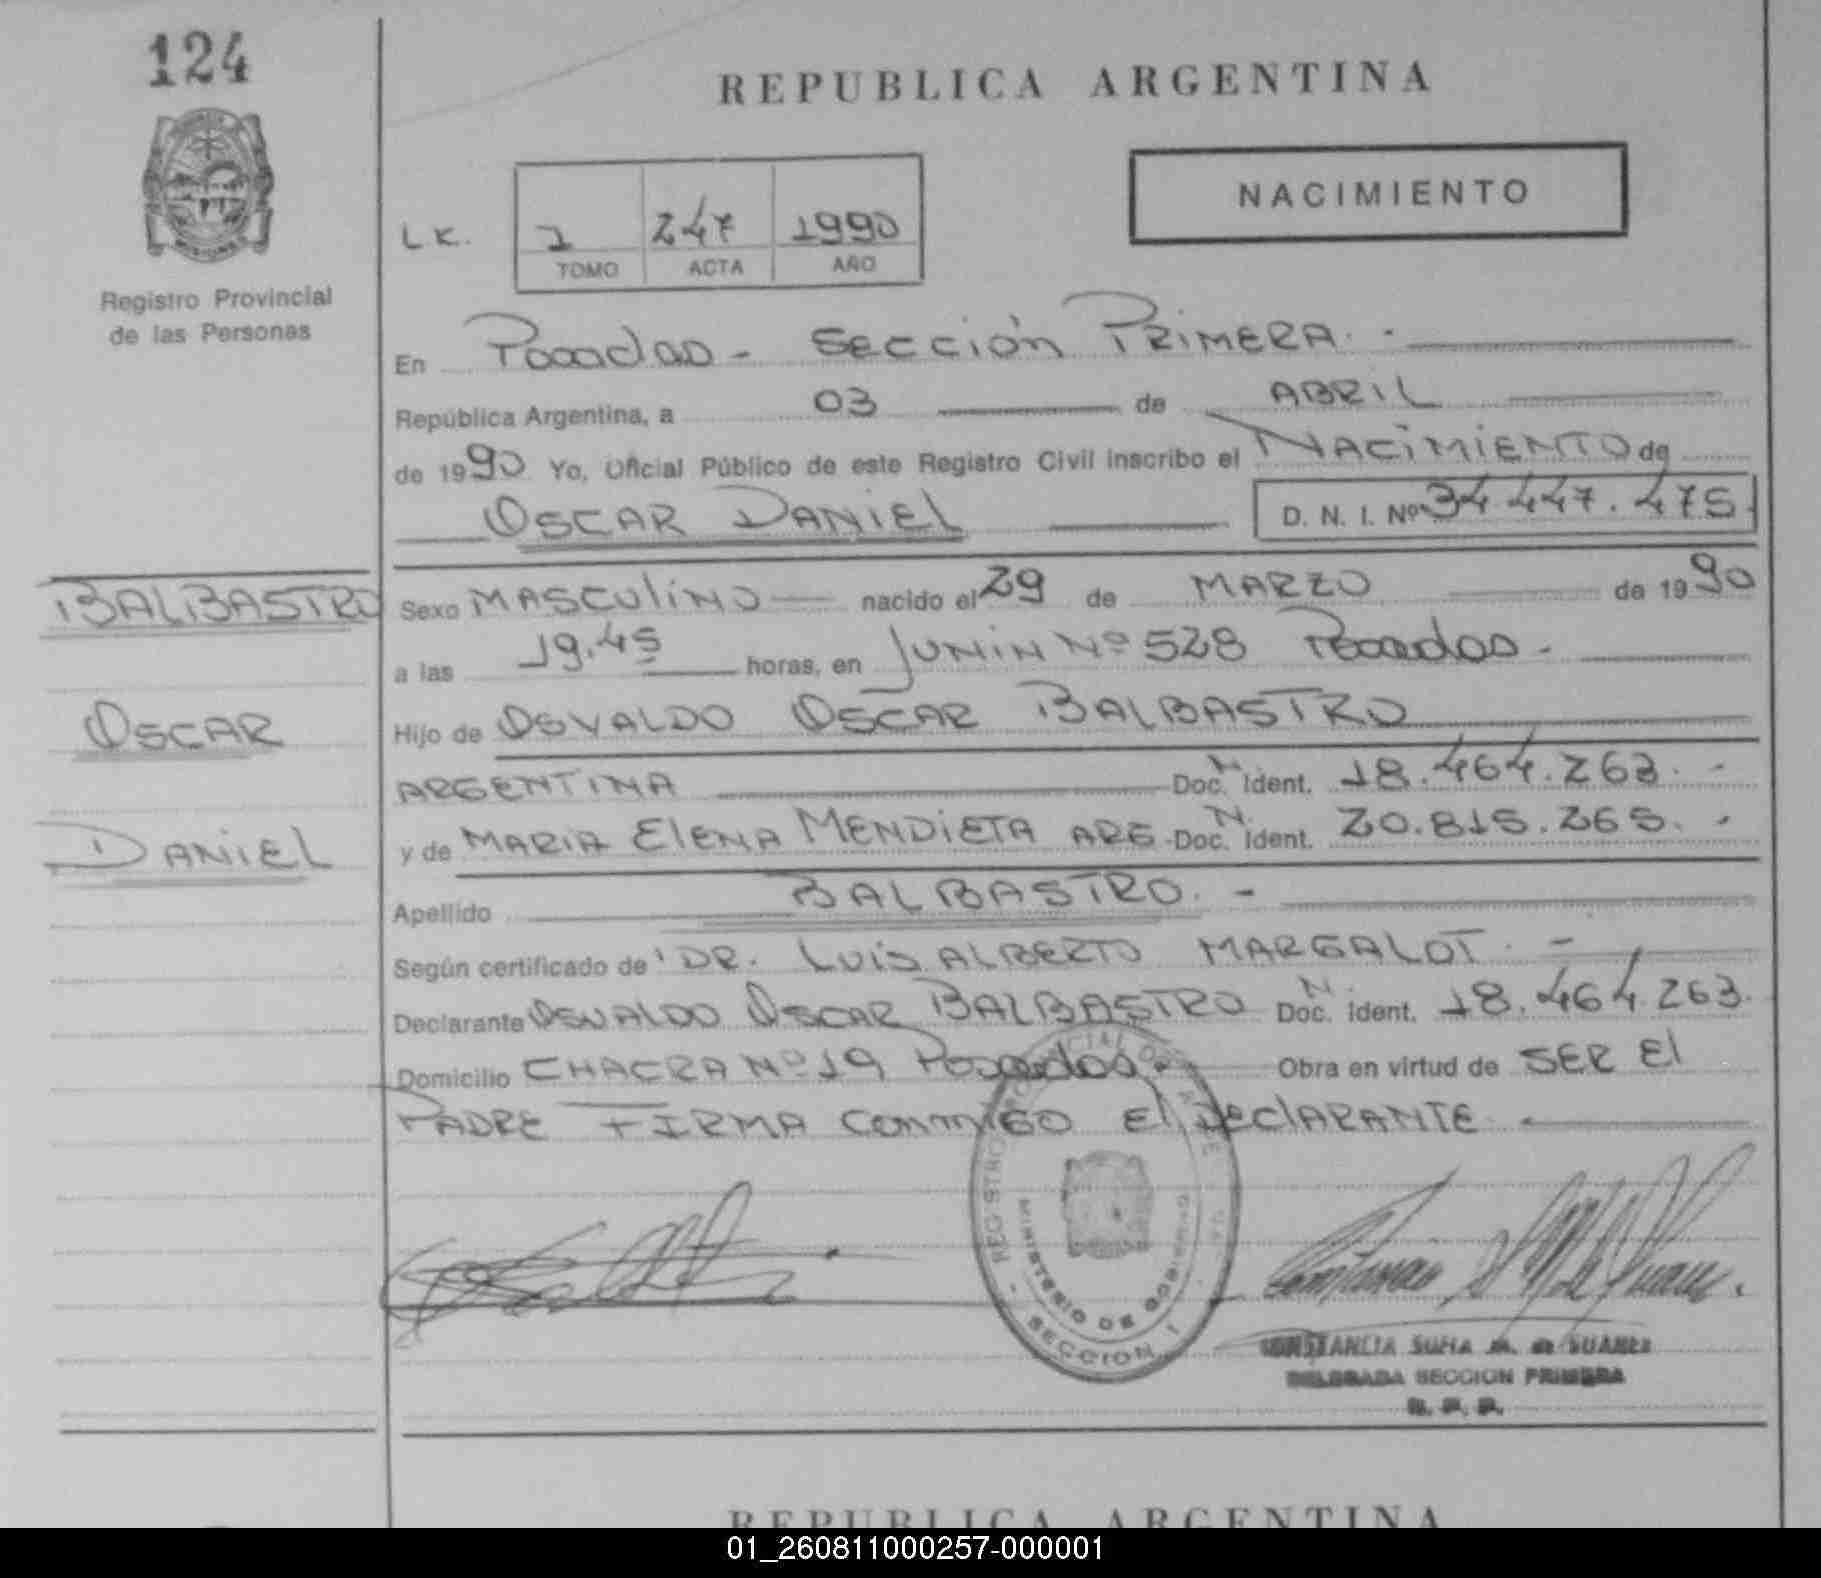 124
Registro Provincial
de las Personas
REPUBLICA ARGENTINA
NACIMIENTO
LK. 1 247 1990
TOMO ACTA AÑO
En Posadas - Sección PRIMERA. -
República Argentina, a 03 de ABRIL
de 1990 Yo, Oficial Público de este Registro Civil inscribo el NACIMIENTO de
OSCAR DANIEL D. N. I. Nº 34.447.475.
BALBASTRO
OSCAR
DANIEL
Sexo MASCULINO nacido el 29 de MARZO de 1990
a las 19.45 horas, en JUNIN Nº 528 Posadas -
Hijo de OSVALDO OSCAR BALBASTRO
ARGENTINA Doc. N. Ident. 18.464.263. -
y de MARIA ELENA MENDIETA ARG - Doc. N. Ident. 20.815.265. -
Apellido BALBASTRO. -
Según certificado de DR. LUIS ALBERTO MARGALOT. -
Declarante OSVALDO OSCAR BALBASTRO Doc. N. Ident. 18.464.263.
Domicilio CHACRA Nº 19 Posadas. - Obra en virtud de SER El
PADRE FIRMA conmigo El DeclARANTE. -
MINISTERIO DE GOBIERNO
SECCION 1
CONSTANCIA SOFIA M. de SUAREZ
DELEGADA SECCION PRIMERA
R. P. P.
REPUBLICA ARGENTINA
01_260811000257-000001